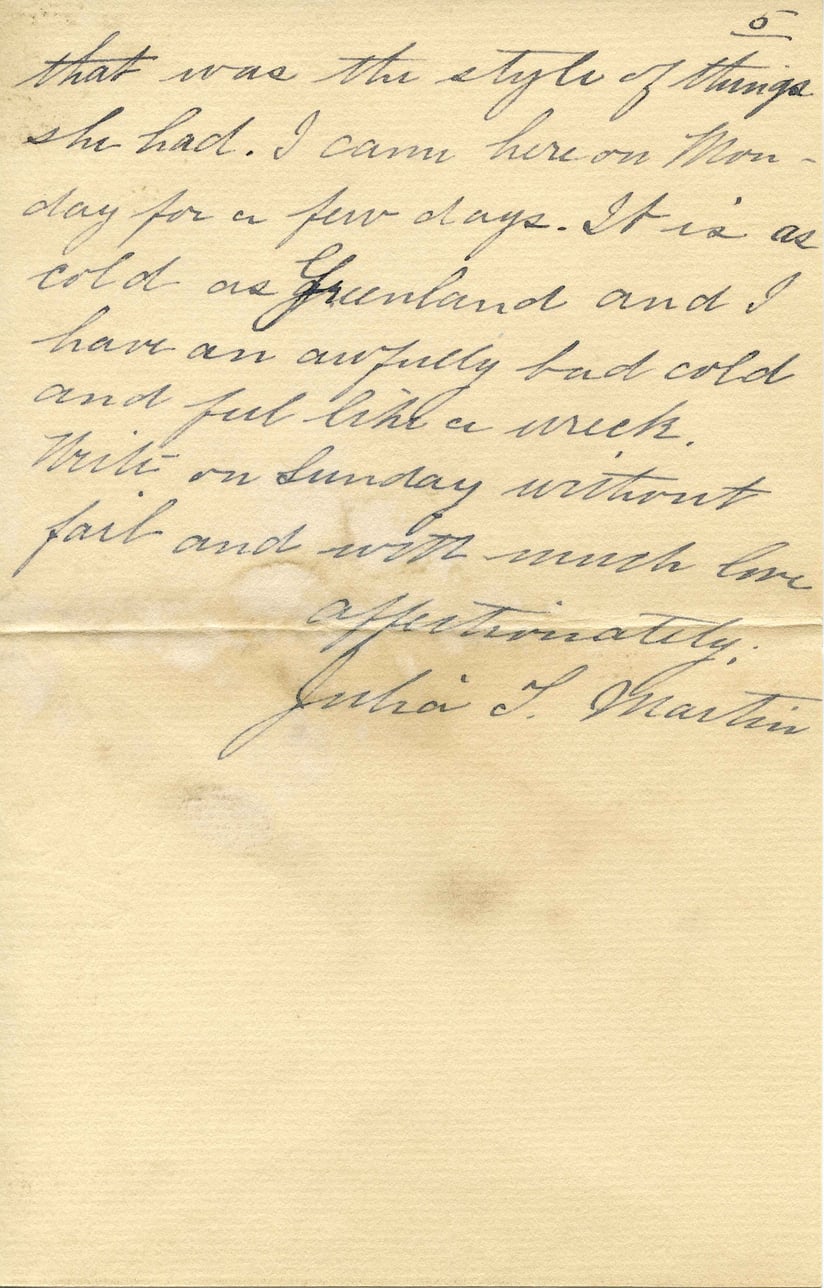 5
that was the style of things
she had. I came here on Mon-
day for a few days. It is as
cold as Greenland and I
have an awfully bad cold
and feel like a wreck.
Write on Sunday without
fail and with much love
affectionately,
Julia T. Martin